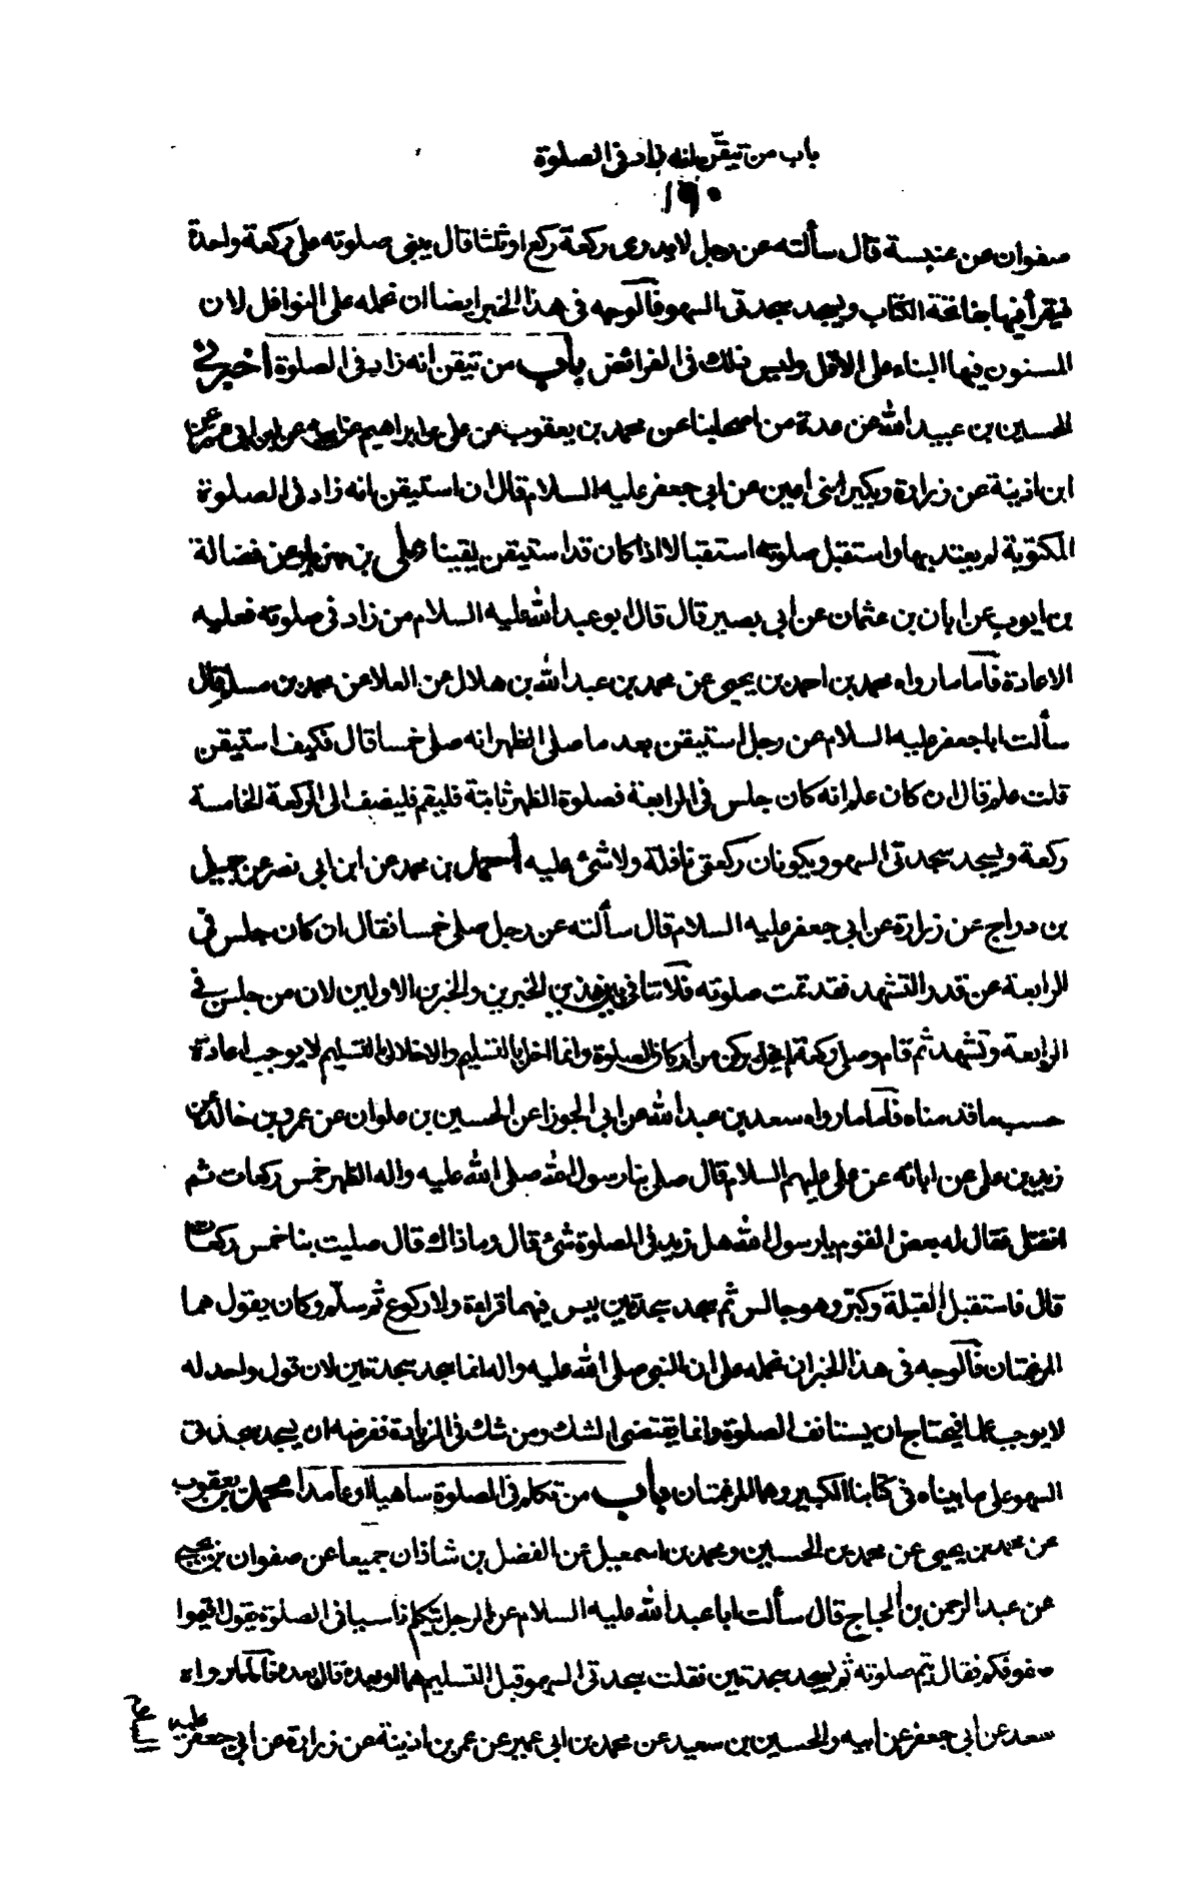 باب من تيقّن انه زاد فى الصلوة
١٩٠
صفوان عن عنبسة قال سألته عن رجل لا يدرى ركعة ركع او ثلثا قال يبنى صلوته على ركعة واحدة
فيقرأ فيها بفاتحة الكتاب ويسجد سجدتى السهو فالوجه فى هذا الخبر ايضا ان نحمله على النوافل لان
المسنون فيها البناء على الاقل وليس ذلك فى الفرائض باب من تيقن انه زاد فى الصلوة اخبرنى
الحسين بن عبيد الله عن عدة من اصحابنا عن محمد بن يعقوب عن على بن ابراهيم عن ابيه عن ابن ابى عمير عن
ابن اذينة عن زرارة وبكير ابنى اعين عن ابى جعفر عليه السلام قال ان استيقن انه زاد فى الصلوة
المكتوبة لم يعتد بها واستقبل صلوته استقبالا اذا كان قد استيقن يقينا على بن مهزيار عن فضالة
بن ايوب عن ابان بن عثمان عن ابى بصير قال قال ابو عبد الله عليه السلام من زاد فى صلوته فعليه
الاعادة فاما ما رواه محمد بن احمد بن يحيى عن محمد بن عبد الله بن هلال عن العلا عن محمد بن مسلم قال
سألت ابا جعفر عليه السلام عن رجل استيقن بعد ما صلى الظهر انه صلى خمسا قال فكيف استيقن
قلت علم قال ان كان علم انه كان جلس فى الرابعة فصلوة الظهر ثابتة فليقم فليضف الى الركعة الخامسة
ركعة ويسجد سجدتى السهو ويكونان ركعتى نافلة ولا شئ عليه احمد بن محمد عن ابن ابى نصر عن جميل
بن دراج عن زرارة عن ابى جعفر عليه السلام قال سألته عن رجل صلى خمسا فقال ان كان جلس فى
الرابعة عن قدر التشهد فقد تمت صلوته فلا تنافى بين هذين الخبرين والخبرين الاولين لان من جلس فى
الرابعة وتشهد ثم قام وصلى ركعة لم يخل بركن من اركان الصلوة وانما اخل بالتسليم والاخلال بالتسليم لا يوجب اعادة
حسب ما قدمناه فاما ما رواه سعد بن عبد الله عن ابى الجوزا عن الحسين بن علوان عن عمرو بن خالد عن
زيد بن على عن ابائه عن على عليهم السلام قال صلى بنا رسول الله صلى الله عليه واله الظهر خمس ركعات ثم
انفتل فقال له بعض القوم يا رسول الله هل زيد فى الصلوة شئ قال وما ذاك قال صليت بنا خمس ركعات
قال فاستقبل القبلة وكبّر وهو جالس ثم سجد سجدتين ليس فيهما قراءة ولا ركوع ثم سلّم وكان يقول هما
المرغمتان فالوجه فى هذا الخبر ان نحمله على ان النبى صلى الله عليه واله انما سجد سجدتين لان قول واحد له
لا يوجب علما فيحتاج ان يستانف الصلوة وانما يقتضى الشك ومن شك فى الزيادة ففرضه ان يسجد سجدتى
السهو على ما بيناه فى كتابنا الكبير وهما المرغمتان باب من تكلم فى الصلوة ساهيا او عامدا محمد بن يعقوب
عن محمد بن يحيى عن محمد بن الحسين ومحمد بن اسمعيل عن الفضل بن شاذان جميعا عن صفوان بن يحيى
عن عبد الرحمن بن الحجاج قال سألت ابا عبد الله عليه السلام عن الرجل يتكلم ناسيا فى الصلوة يقول اقيموا
صفوفكم فقال يتم صلوته ثم يسجد سجدتين فقلت سجدتى السهو قبل التسليم هما او بعده قال بعده فاما ما رواه
سعد عن ابى جعفر عن ابيه والحسين بن سعيد عن محمد بن ابى عمير عن عمر بن اذينة عن زرارة عن ابى جعفر عليه